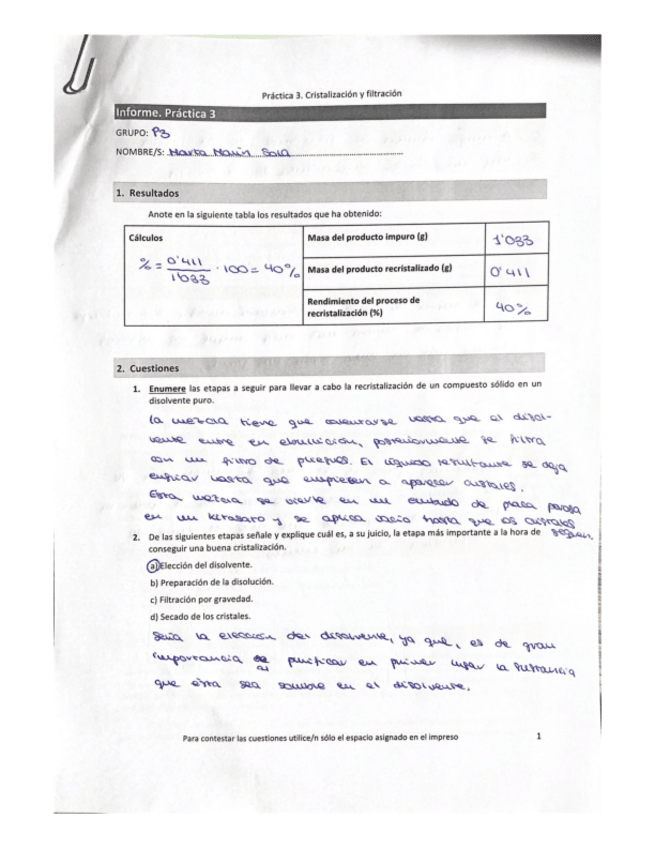 Práctica 3. Cristalización y filtración
Informe. Práctica 3
GRUPO: P3
NOMBRE/S: Marta Marín Sola
1. Resultados
Anote en la siguiente tabla los resultados que ha obtenido:
Cálculos
% = 0'411 / 1'033 · 100 = 40%
Masa del producto impuro (g) 1'033
Masa del producto recristalizado (g) 0'411
Rendimiento del proceso de
recristalización (%) 40%
2. Cuestiones
1. Enumere las etapas a seguir para llevar a cabo la recristalización de un compuesto sólido en un
disolvente puro.
la mezcla tiene que calentarse hasta que el disol-
vente entre en ebullición, posteriormente se filtra
con un filtro de pliegues. El líquido resultante se deja
enfriar hasta que empiecen a aparecer cristales.
Esta mezcla se vierte en un embudo de placa porosa
en un kitasato y se aplica vacío hasta que los cristales
sequen
2. De las siguientes etapas señale y explique cuál es, a su juicio, la etapa más importante a la hora de
conseguir una buena cristalización.
a) Elección del disolvente.
b) Preparación de la disolución.
c) Filtración por gravedad.
d) Secado de los cristales.
Sería la elección del disolvente, ya que, es de gran
importancia al purificar en primer lugar la sustancia
que ésta sea soluble en el disolvente.
Para contestar las cuestiones utilice/n sólo el espacio asignado en el impreso 1